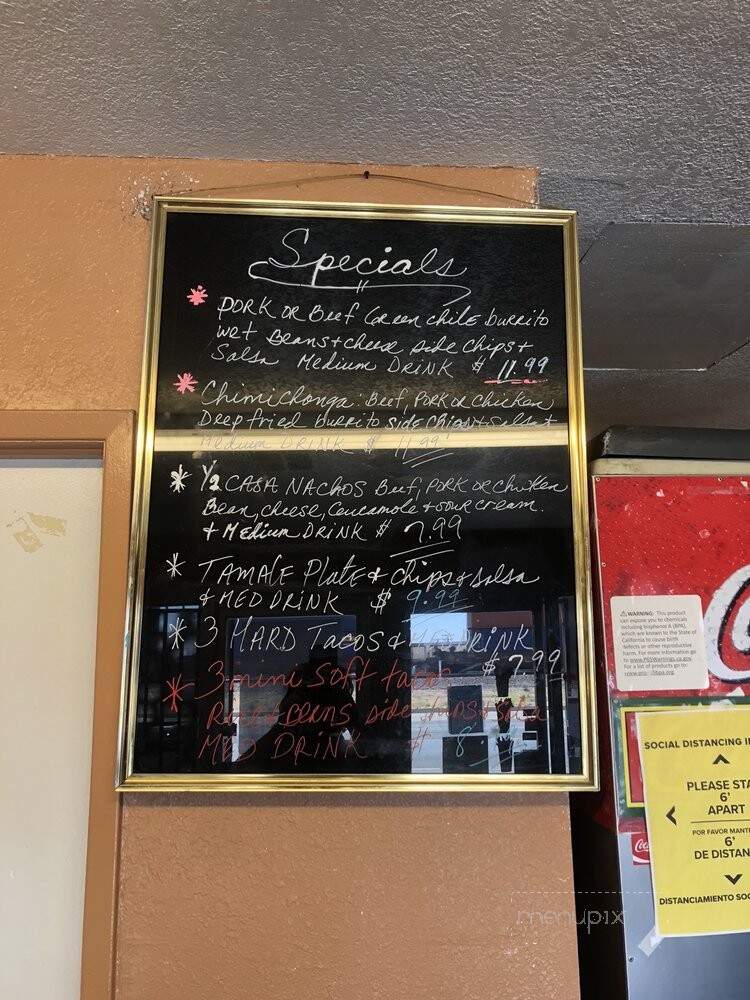 Specials
* PORK OR Beef Green chile burrito
wet Beans + cheese side chips +
Salsa Medium DRINK $ 11.99
* Chimichonga: Beef, PORK or Chicken
Deep fried burrito side Chips + Salsa +
Medium DRINK $ 11.99
* 1/2 CASA NAchos Beef, PORK or chicken
Bean, cheese, Guacamole + sour cream.
+ Medium DRINK $ 7.99
* TAMALE Plate + chips + salsa
+ MED DRINK $ 9.99
* 3 HARD Tacos + DRINK
$ 7.99
* 3 mini Soft tacos
Rice + Beans side chips + salsa
MED DRINK $ 8.
WARNING: This product
can expose you to chemicals
including bisphenol A (BPA),
which are known to the State of
California to cause birth
defects or other reproductive
harm. For more information go
to www.P65Warnings.ca.gov.
For a list of products go to:
SOCIAL DISTANCING I
PLEASE STA
6'
APART
POR FAVOR MANT
6'
DE DISTAN
DISTANCIAMIENTO SOC
menupix